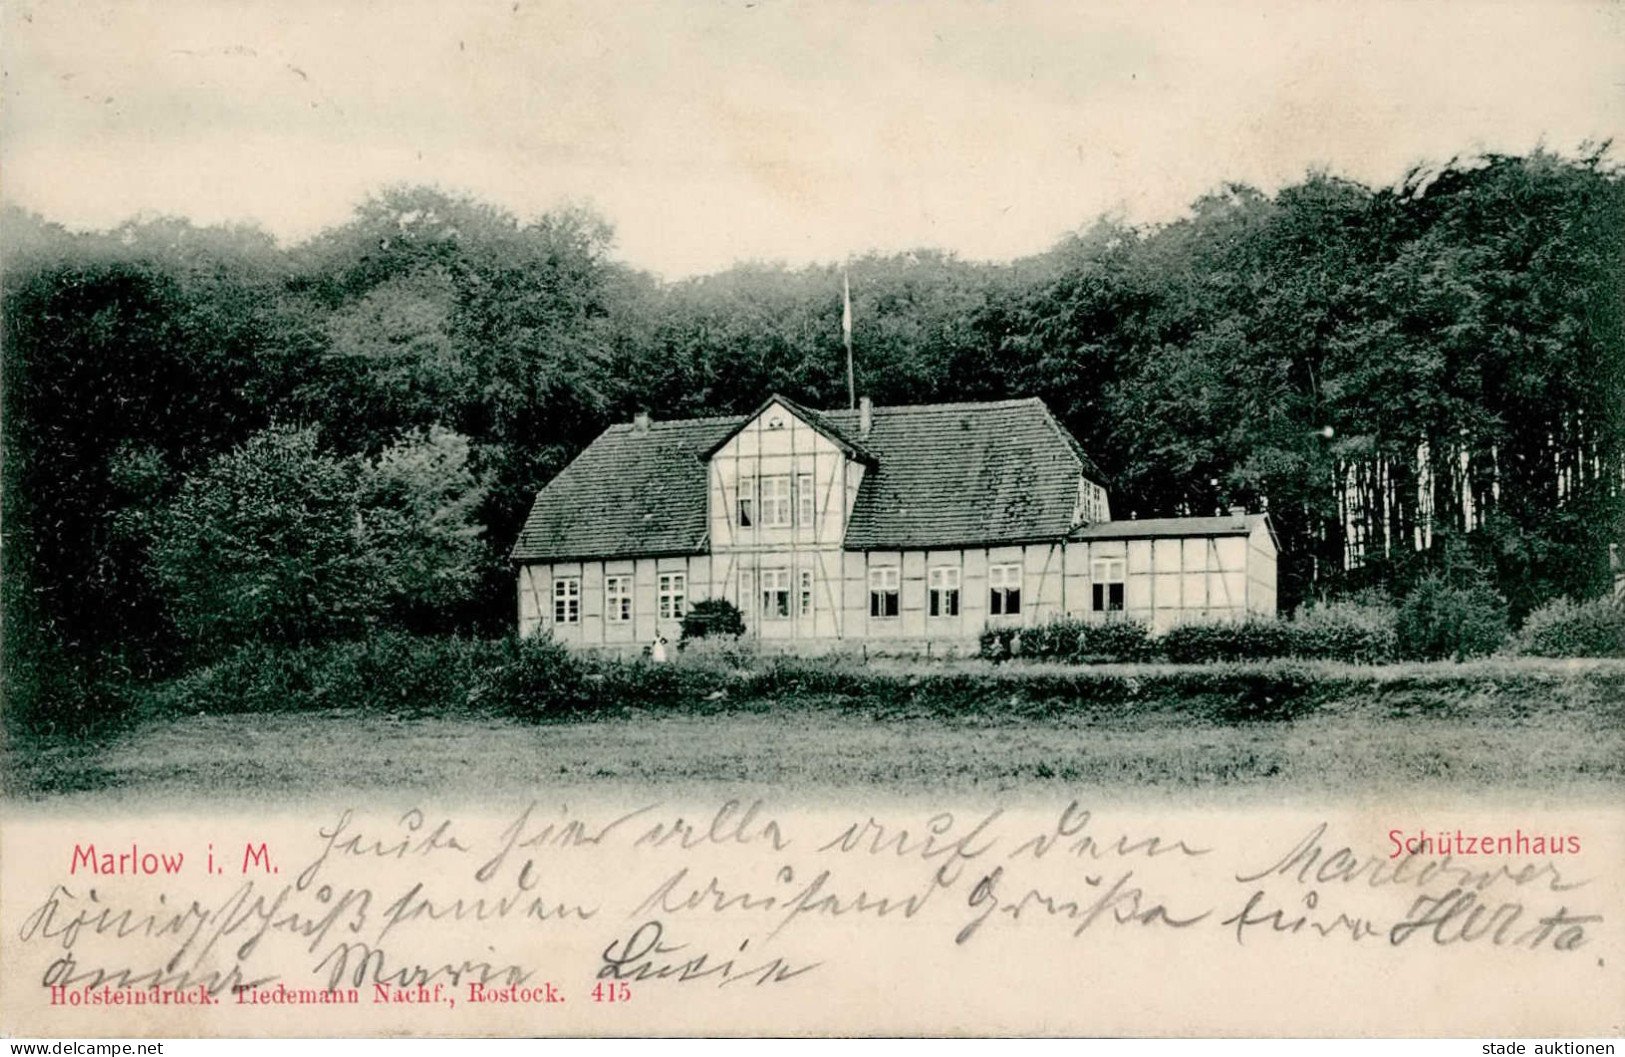 Marlow i. M.
Schützenhaus
Heute hier alle auf dem Marlower
Königschuß senden tausend Grüße Eure Herta
Anna Marie Lucie
Hofsteindruck. Tiedemann Nachf., Rostock. 415
www.delcampe.net
stade auktionen